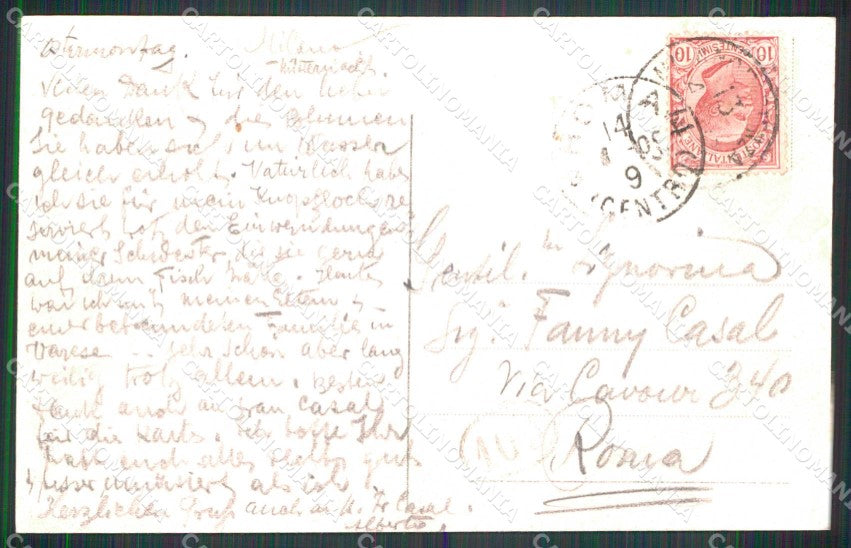 Ostermontag.
Milano
Mitternacht
Vielen Dank für den lieben
gedanken & die Blumen
Sie haben sich im Wasser
gleich erholt. Natürlich habe
ich sie für mein Knopfloch re
serviert trotz den Einwendungen
meiner Schwester, die sie gerne
auf dem Tisch hätte. Heute
war ich mit meinen Eltern &
einer befreundeten Familie in
Varese ... sehr schön aber lang
weilig trotz allem. Besten
Dank auch an Frau Casal
für die Karte. Ich hoffe Ihr
habt euch alles
amüsiert als ich
Herzlichen Gruss auch an Fr Casal.
Alberto
10 CENTESIMI 10
POSTE ITALIANE
14
4
09
9
(CENTRO)
Gentil.ma Signorina
Sig.a Fanny Casal
Via Cavour 240
Roma
CARTOLINOMANIA